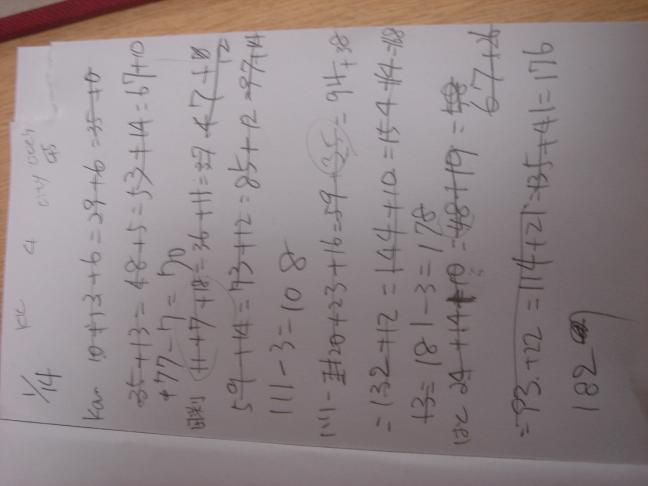 1/14 KK 4 city
Kan 10+13+6=29+6=35+0
35+13=48+5=53+14=67+10
+77-7=70
11+7+18=36+11=
59+14=73+12=85+12=97+14
111-3=108
20+23+16=59+35=94+38
=132+12=144+10=154+14=168
+3=181-3=178
はと 24+14+10=48+19=
67+26
=93+22=114+21=135+41=176
182